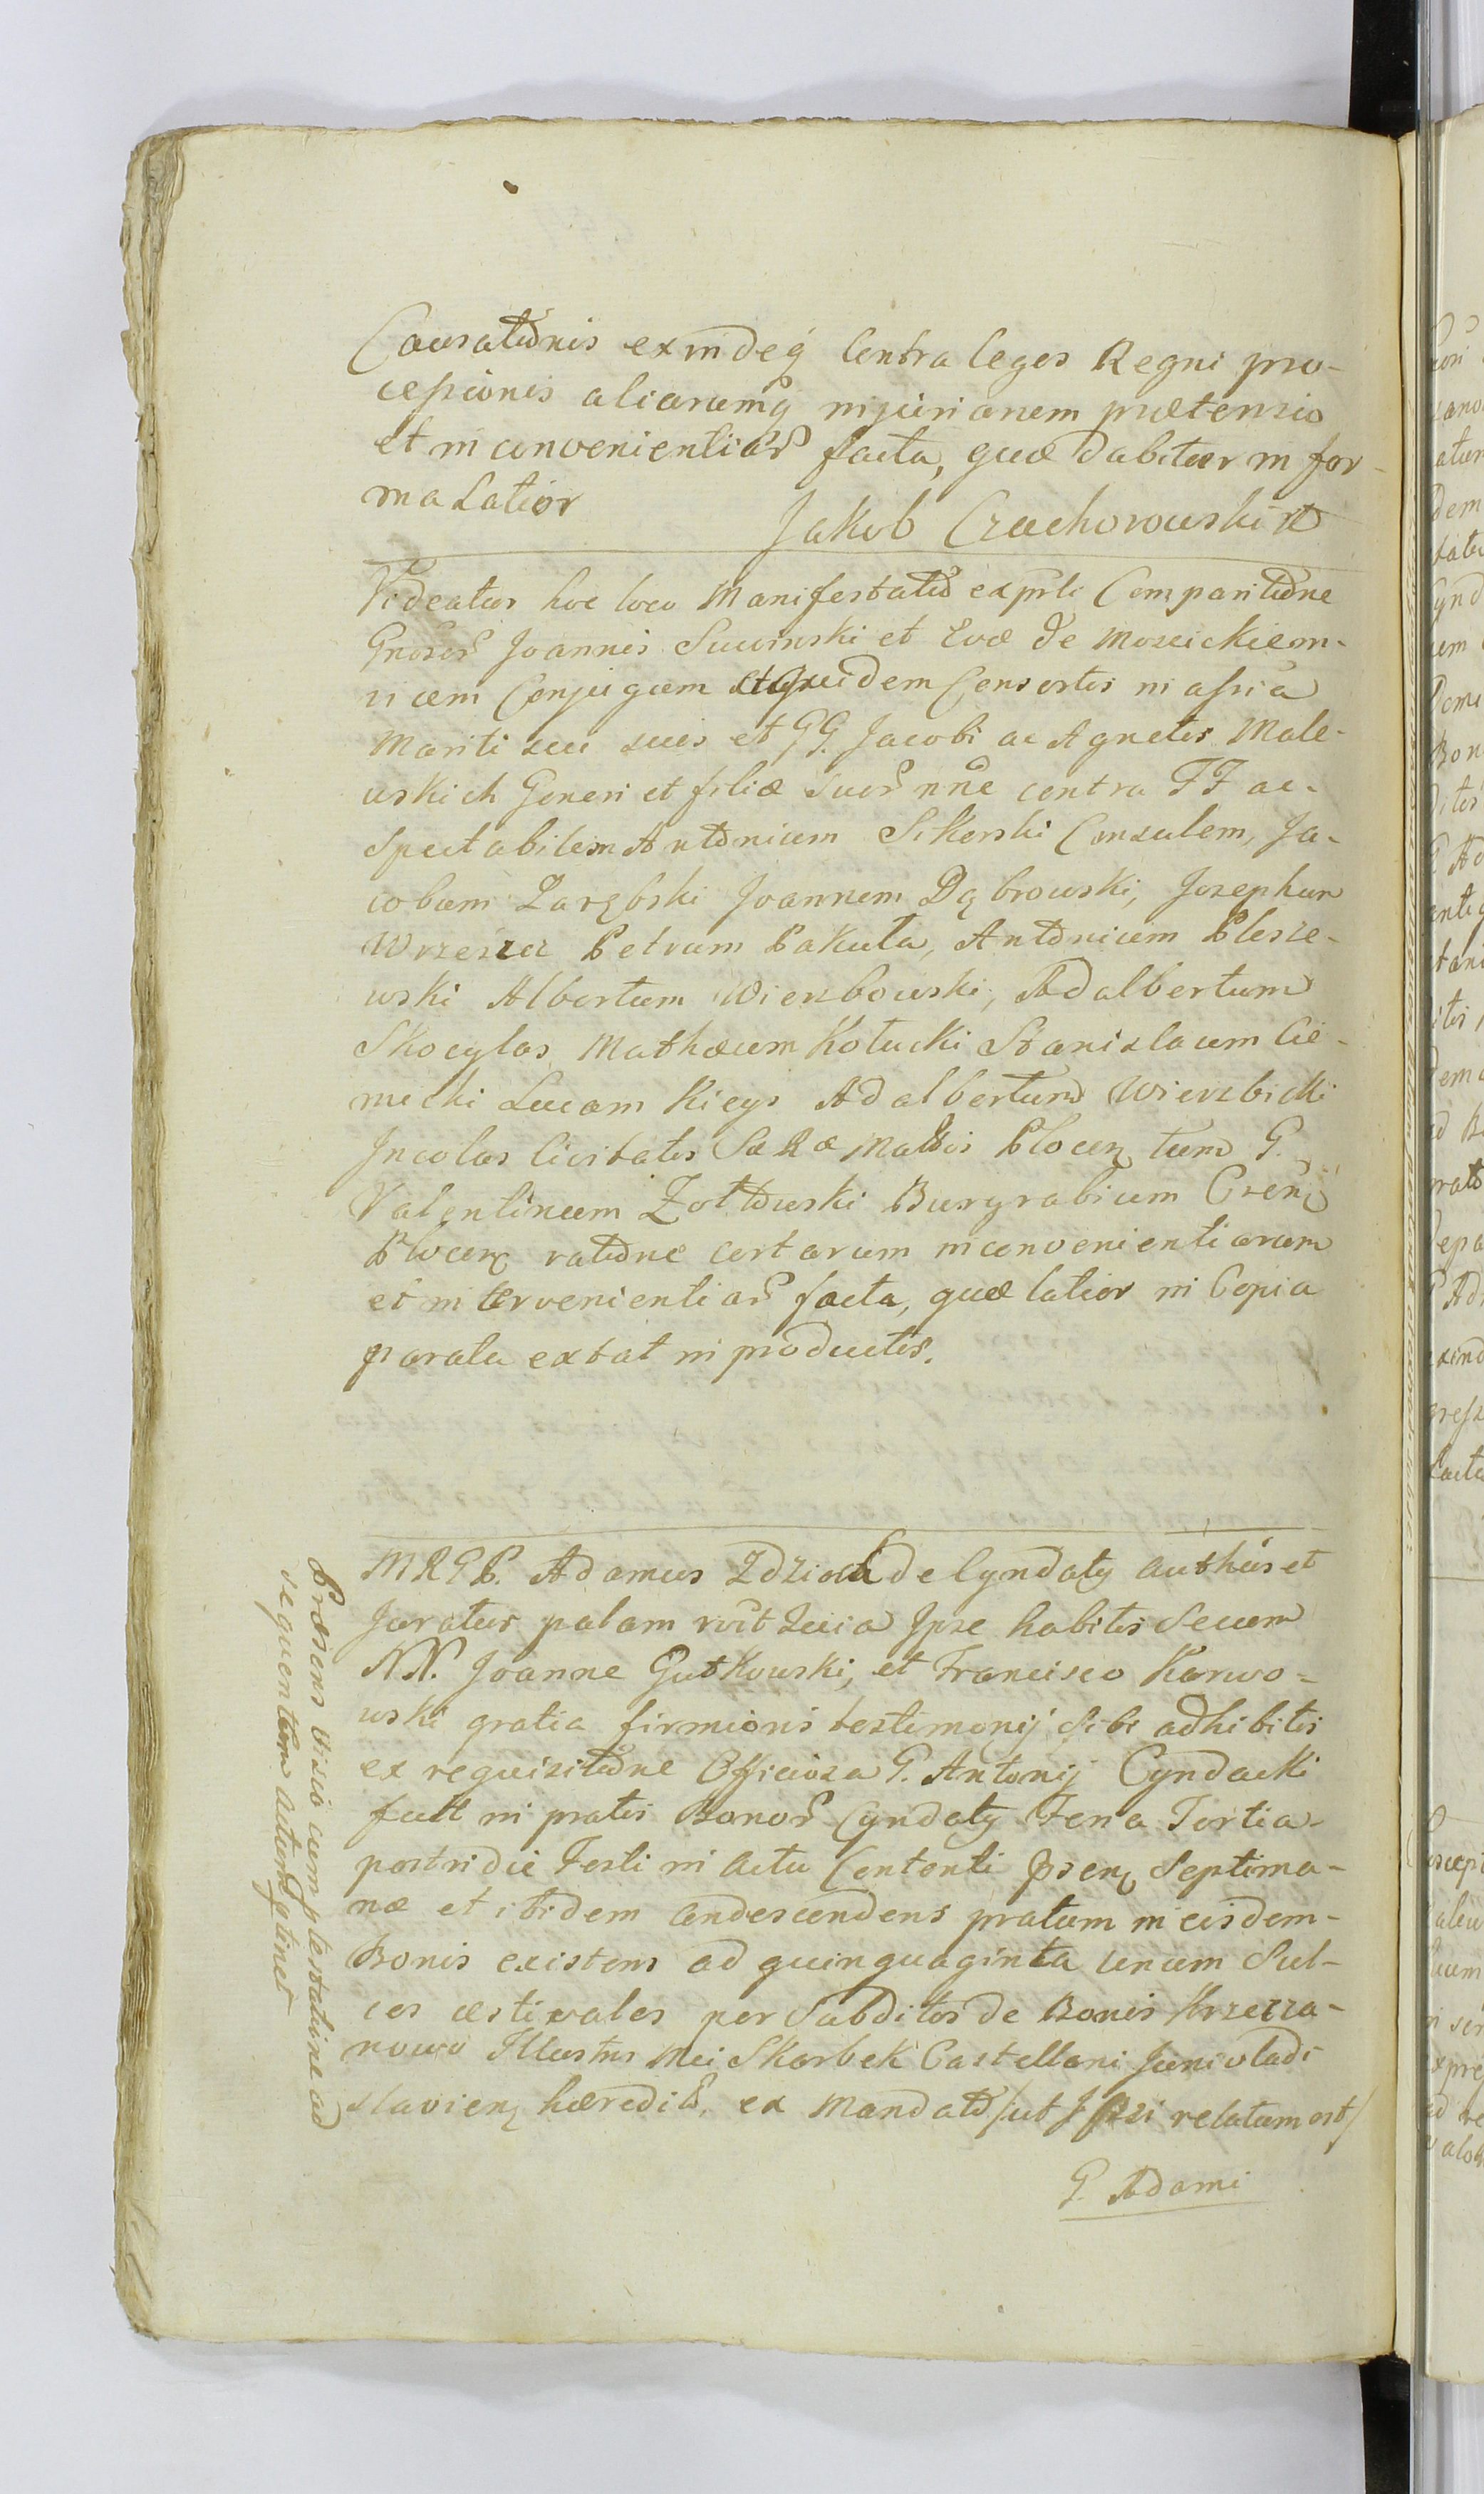 Causationis exindeq contra leges Regni pro-
cessionis aliarumq injuriarum prætensio
et inconvenientiar facta, quæ dabitur in for-
ma Latior
Jakob Czachorowski
Videatur hoc loco Manifestatio ex parte Comparitione
Gnosor Joannis Suwinski et Evæ de
Conjugum Consortis in assia
Mariti sui suis et GG. Jacobi ac Agnetis Male-
wskich Generi et filiæ suor nne contra FF ac-
Spectabilem Antonium Sikorski Consulem, Ja-
cobum Zarębski Joannem Dąbrowski, Josephum
Wrzeszcz Petrum Pakuła, Antonium Plesze-
wski Albertum Wierzbowski, Adalbertum
Skocylas, Mathæum Kołucki Stanislaum Cie-
mecki Lucam Kieys Adalbertum Wierzbicki
Incolas Civitatis SaRæ Mattis Plocen tum G.
Valentinum Zołtowski Burgrabium
Plocen ratione certarum inconvenientiarum
et intervenientiar facta, quæ latior in Copia
parata extat in productis.
MRGP. Adamus Zdzioch de Cyndaty authus et
Juratus palam rvit Quia Ipse habitis Secum
NN. Joanne Gutkowski, et Francisco Karwo-
wski gratia firmioris testimonij Sibi adhibitis
ex requisitione Officiosa G. Antonij Cyndacki
fuit in pratis Bonor Cyndaty Feria Tertia-
postridie Festi in actu Contenti psen Septima-
næ et ibidem condescendens pratum in eisdem-
Bonis existens ad quinquaginta unum Sul-
cos æstivales per Subditos de Bonis Krzecza-
nowo Illustris Mei Skarbek Castellani Junivladi
slavien hæredit, ex Mandato /ut Ipsi relatum est/
G. Adami
Præsens visio cum ptestatione ad
sequentem actum ptinet